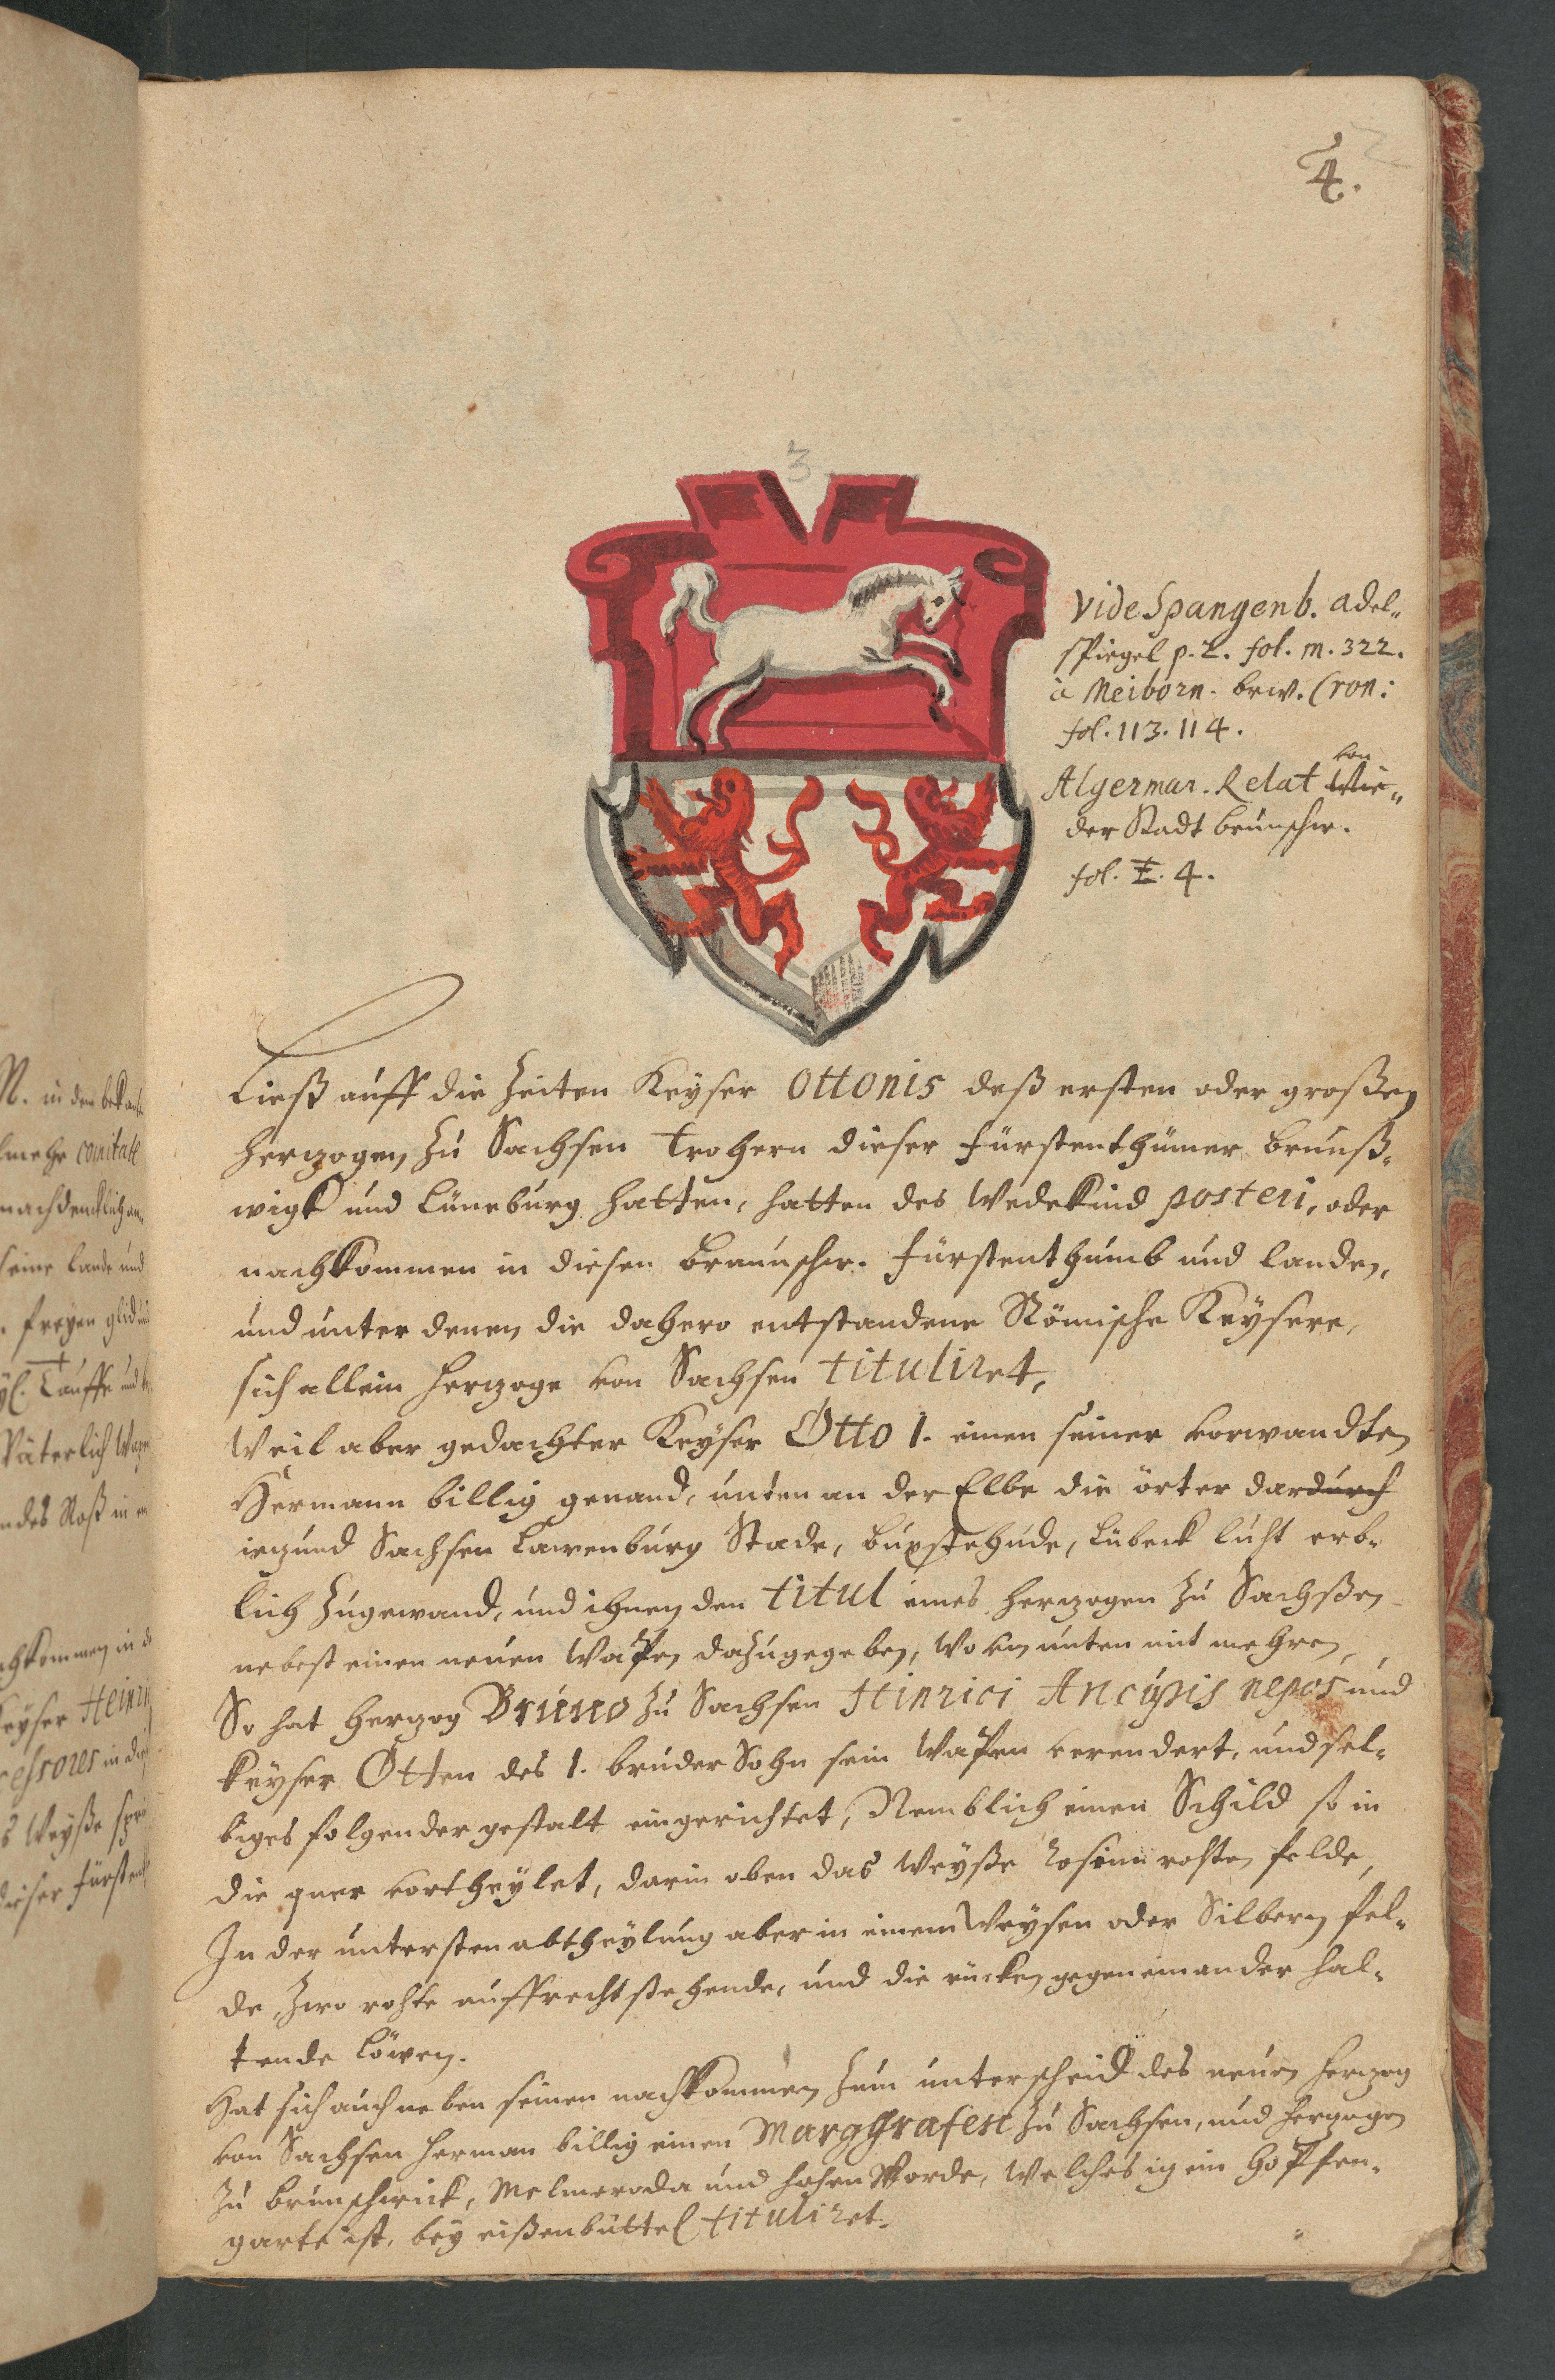 4.
3
Vide Spangenb. adel-
spiegel p. 2. fol. m. 322.
à Meibom. brw. Cron:
fol. 113. 114.
von
Algermar. Relat
der Stadt brunschw.
fol. E. 4.
Ließ auff die Zeiten Keyser Ottonis deß ersten oder großen
Hertzogen zu Sachsen hern dieser fürstenthümer brunß-
wigk und Lüneburg hatten, hatten des Wedekind posteri, oder
nachkommen in diesen Braunschw. fürstenthumb und landen,
und unter denen die dahero entstandene Römische Keysere,
sich allein Hertzoge von Sachsen tituliret,
Weil aber gedachter Keyser Otto 1. einen seiner vorwandten
Hermann billig genand, unten an der Elbe die örter dardurch
ietzund Sachsen Lawenburg Stade, buxstehude, Lübeck liht erb-
lich zugewand, und ihnen den titul eines Hertzogen zu Sachßen
nebest einen neuen Wapen dazugegeben, wovon unten mit mehren,
So hat Hertzog Bruno zu Sachsen Hinrici Aucupis nepos und
keyser Otten des 1. bruder Sohn sein Wapen verendert, und sel-
biges folgender gestalt eingerichtet, Nemblich einen Schild so in
die quer vortheylet, darin oben das Weyße roß im rohten felde,
In der untersten abtheylung aber in einem Weysen oder Silbern fel-
de, Zwo rohte auffrecht stehende, und die rücken gegen einander hal-
tende Löwen.
Hat sich auch neben seinen nachkommen zum unterscheid des neuen Hertzog
von Sachsen Herman billig einen Marggrafen zu Sachsen, und Hertzogen
zu brunschwick, Melmeroda und hohen Worde, Welches itz ein Hopfen-
garte ist, bey eißenbüttel tituliret.